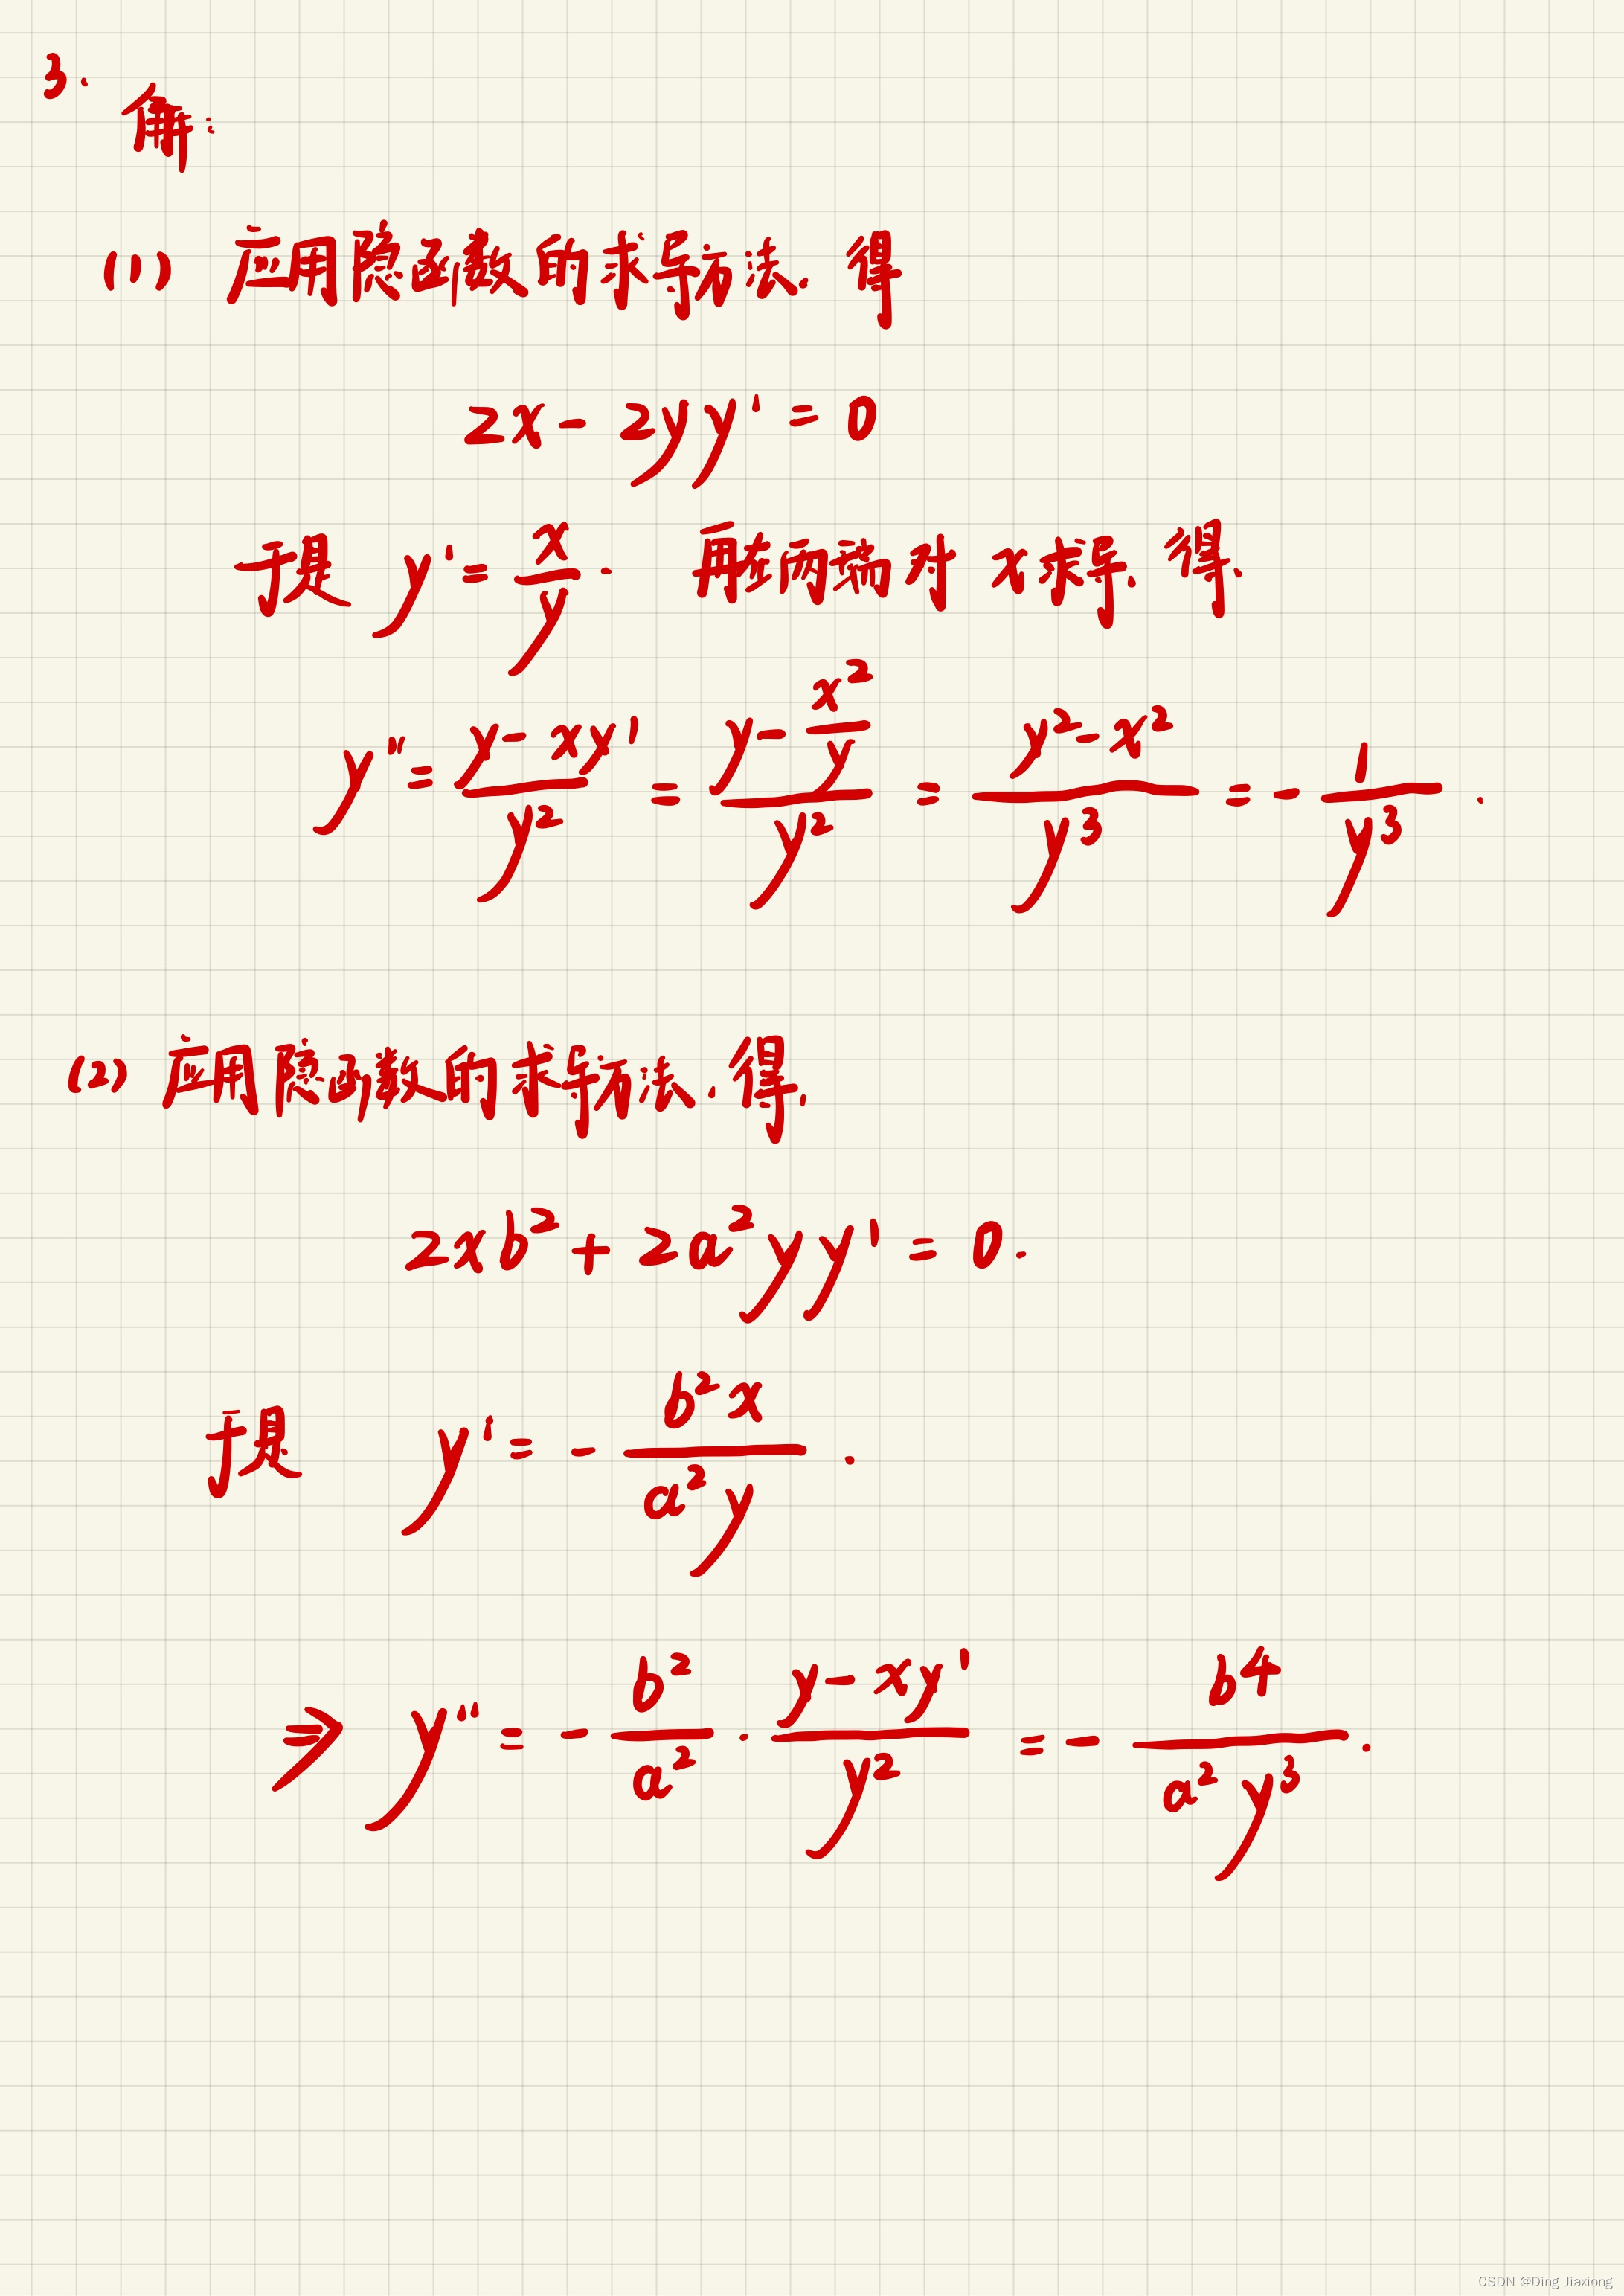 3.
解:
(1) 应用隐函数的求导方法, 得
2x - 2yy' = 0
于是 y' = x/y. 再在两端对 x 求导, 得.
y'' = (y - xy')/y² = (y - x²/y)/y² = (y² - x²)/y³ = - 1/y³.
(2) 应用隐函数的求导方法, 得,
2xb² + 2a²yy' = 0.
于是 y' = - b²x/(a²y).
⇒ y'' = - b²/a² · (y - xy')/y² = - b⁴/(a²y³).
CSDN @Ding Jiaxiong